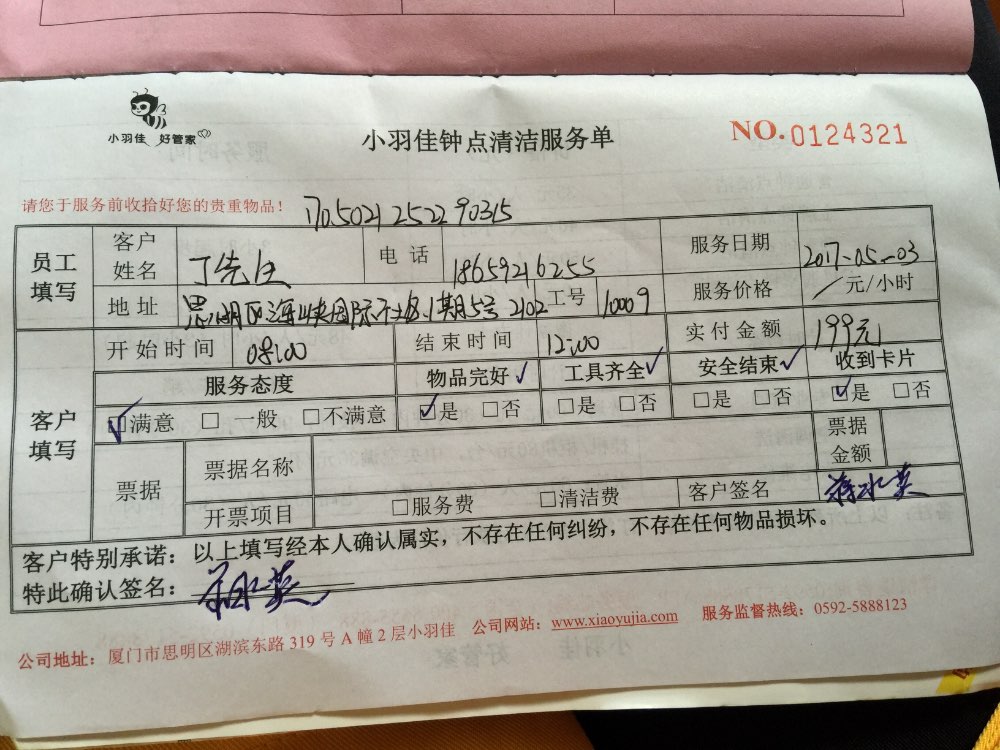 小羽佳 好管家
小羽佳钟点清洁服务单
NO.0124321
请您于服务前收拾好您的贵重物品！
1705021252290315
员工填写 客户姓名 丁先生 电话 18659216255 服务日期 2017-05-03
地址 思明区海峡国际社区1期5号2102 工号 10009 服务价格 / 元/小时
客户填写 开始时间 08:00 结束时间 12:00 实付金额 199元
服务态度 物品完好✓ 工具齐全✓ 安全结束✓ 收到卡片
☑满意 □一般 □不满意 ☑是 □否 □是 □否 □是 □否 ☑是 □否
票据 票据名称 票据金额
开票项目 □服务费 □清洁费 客户签名
客户特别承诺：以上填写经本人确认属实，不存在任何纠纷，不存在任何物品损坏。
特此确认签名：
公司地址：厦门市思明区湖滨东路 319 号 A 幢 2 层小羽佳 公司网站：www.xiaoyujia.com 服务监督热线：0592-5888123